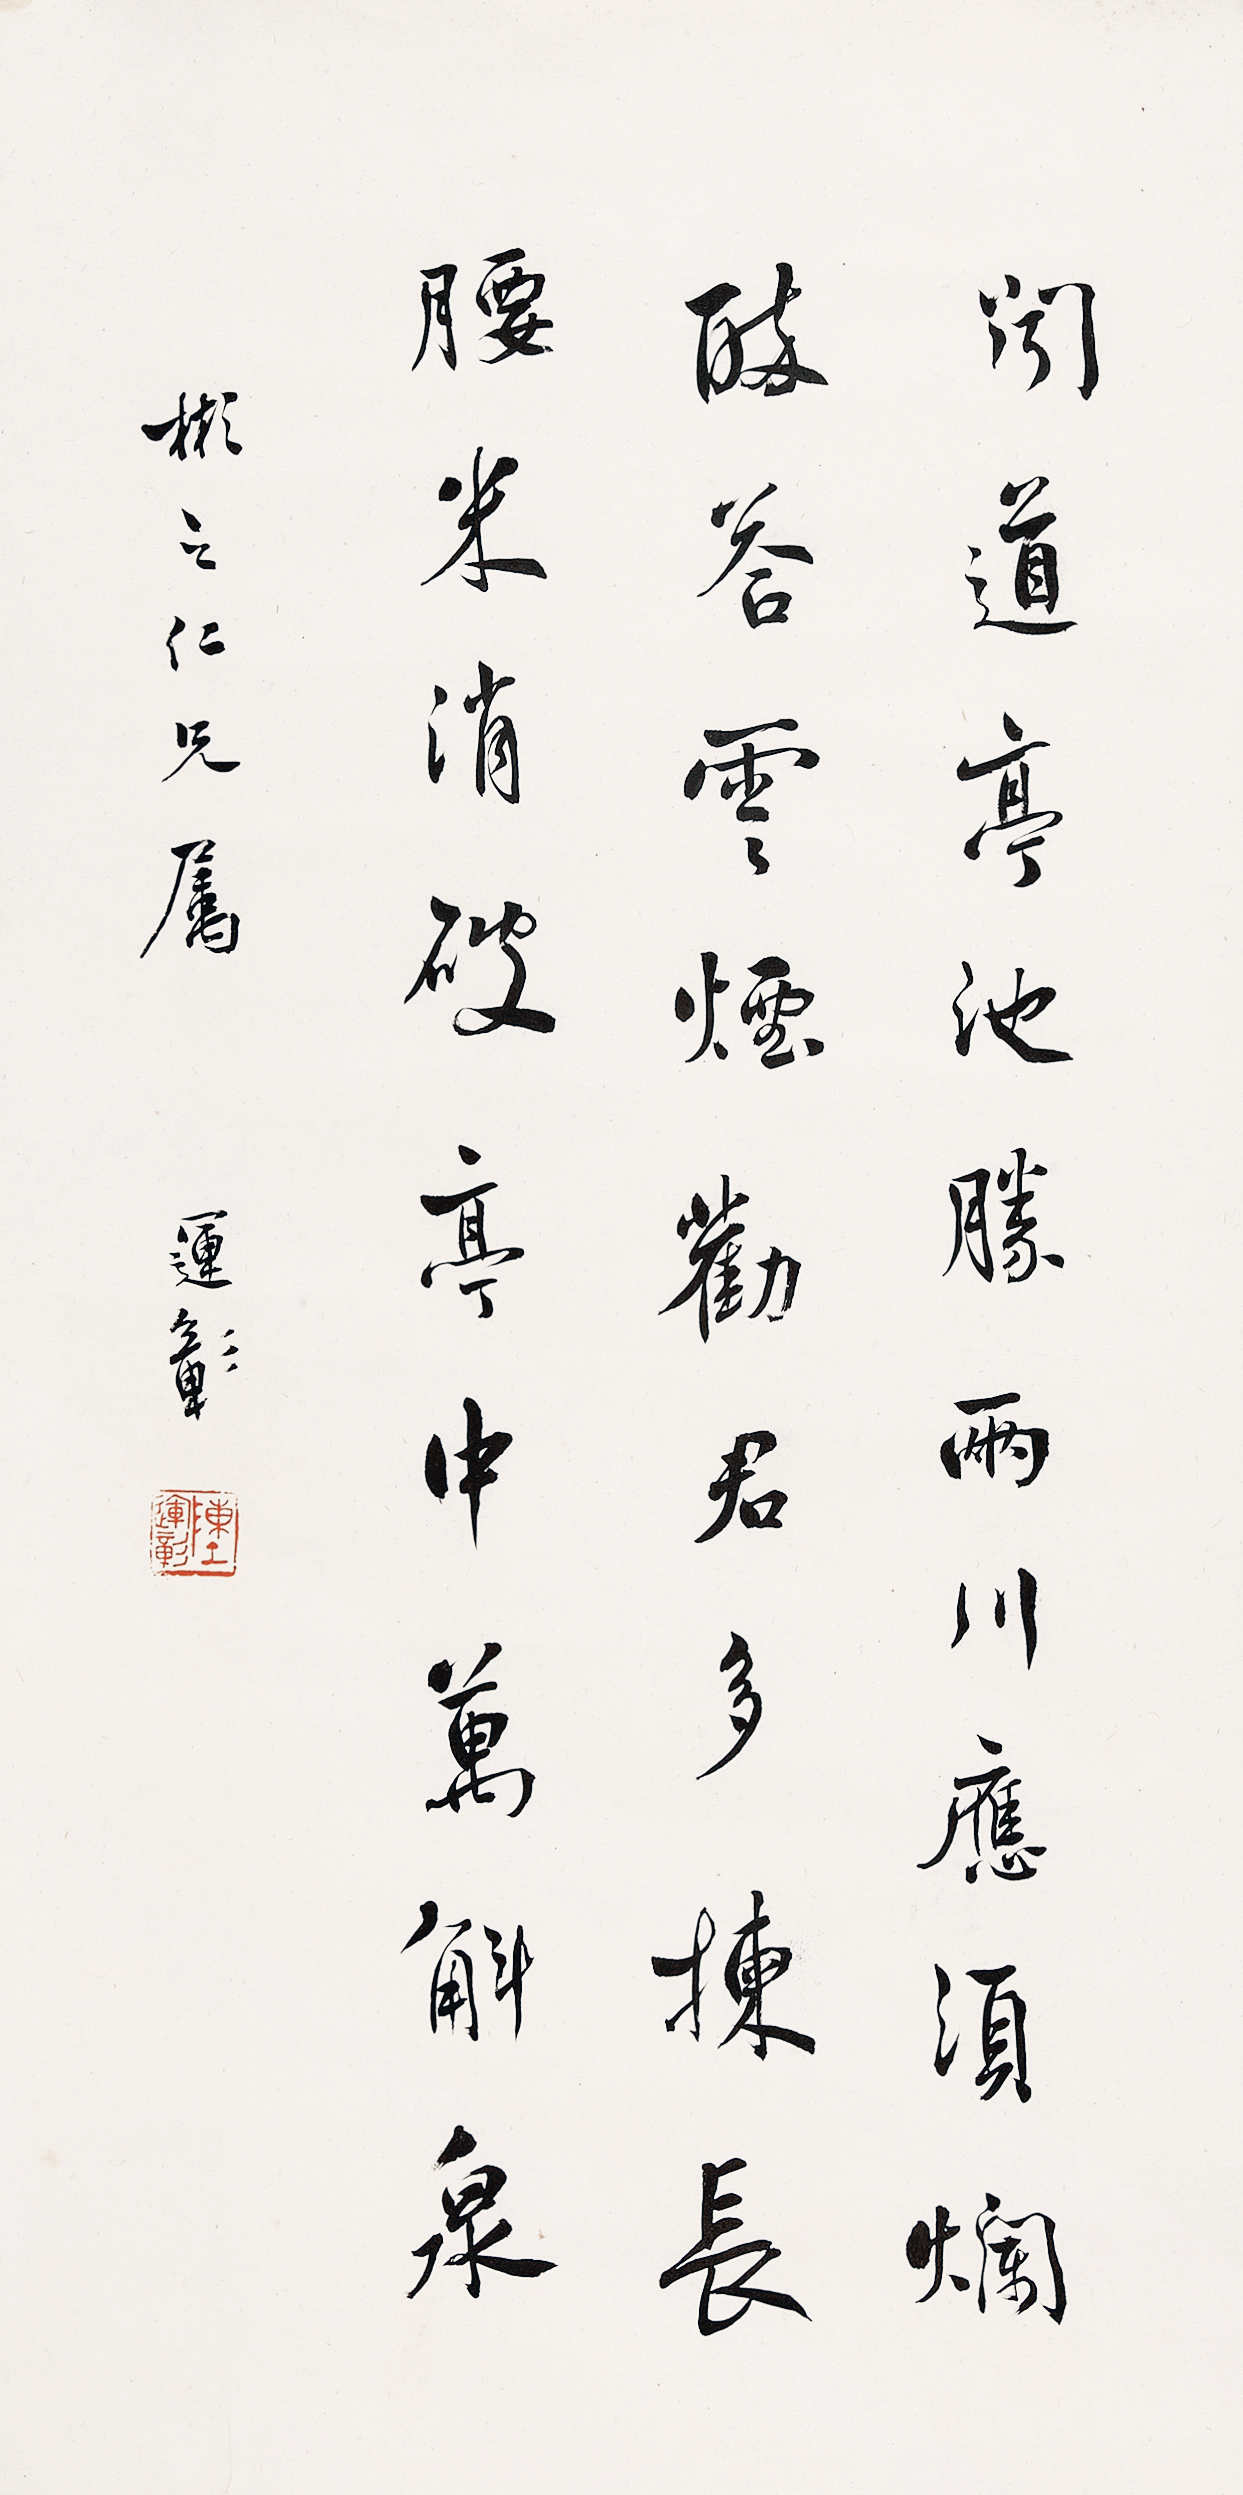 聞道亭池勝兩川應須爛
醉答雲煙勸君多揀長
腰米消破亭中萬斛泉
彬之仁兄屬
運彰
陳運彰